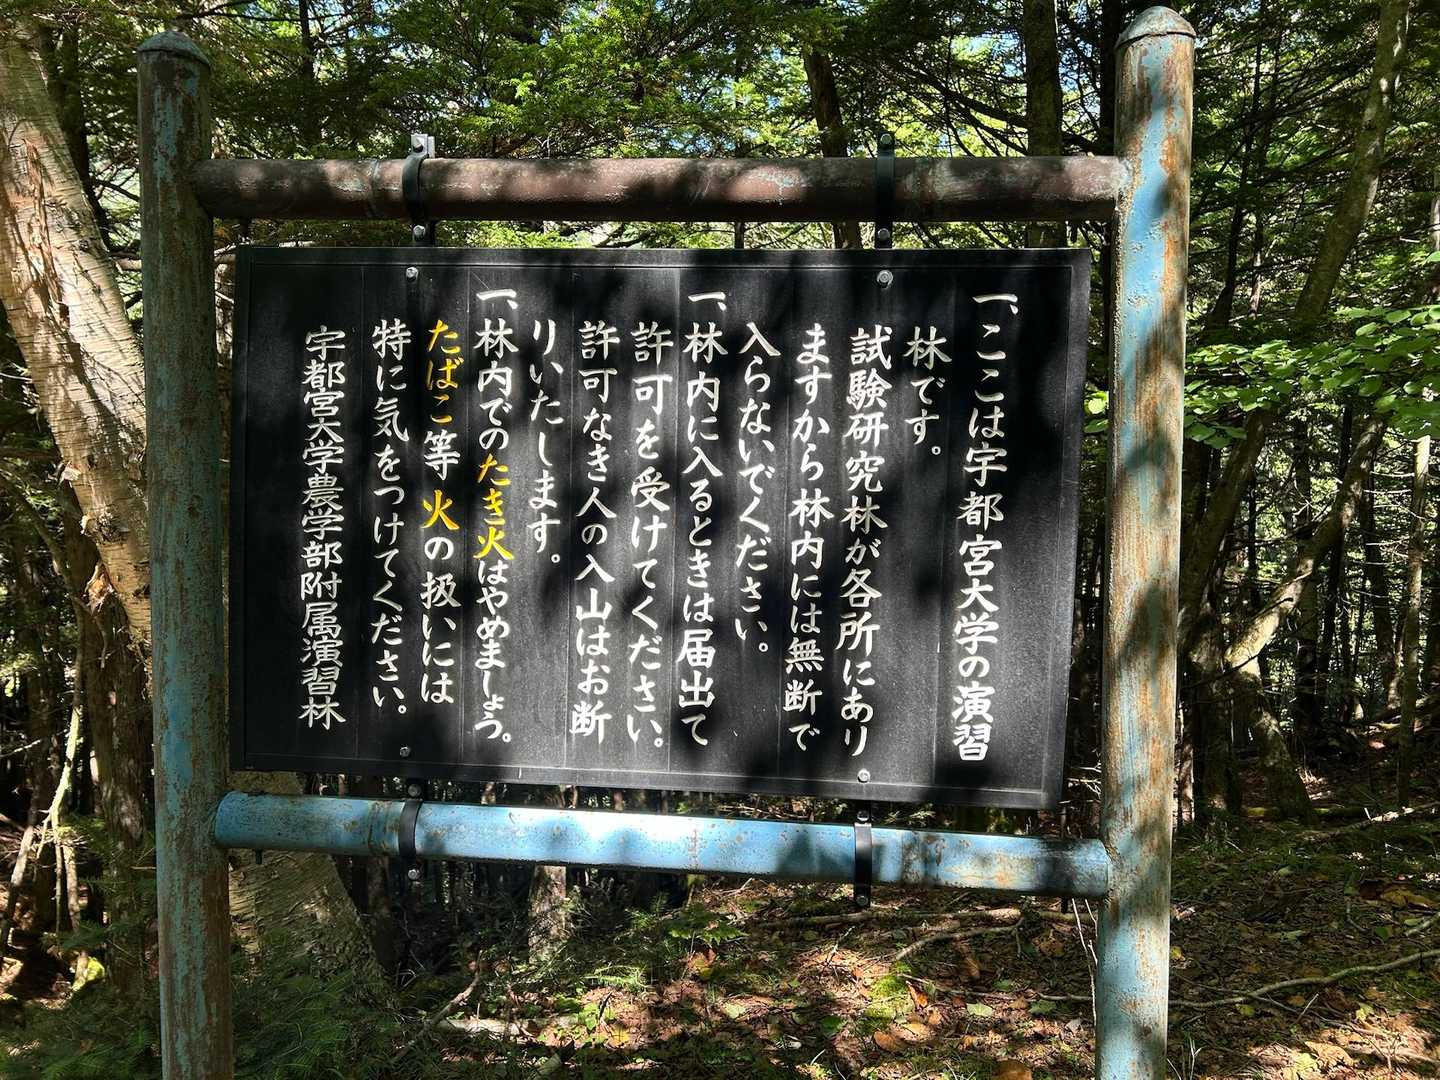 一、ここは宇都宮大学の演習
林です。
試験研究林が各所にあり
ますから林内には無断で
入らないでください。
一、林内に入るときは届出て
許可を受けてください。
許可なき人の入山はお断
りいたします。
一、林内でのたき火はやめましょう。
たばこ等火の扱いには
特に気をつけてください。
宇都宮大学農学部附属演習林